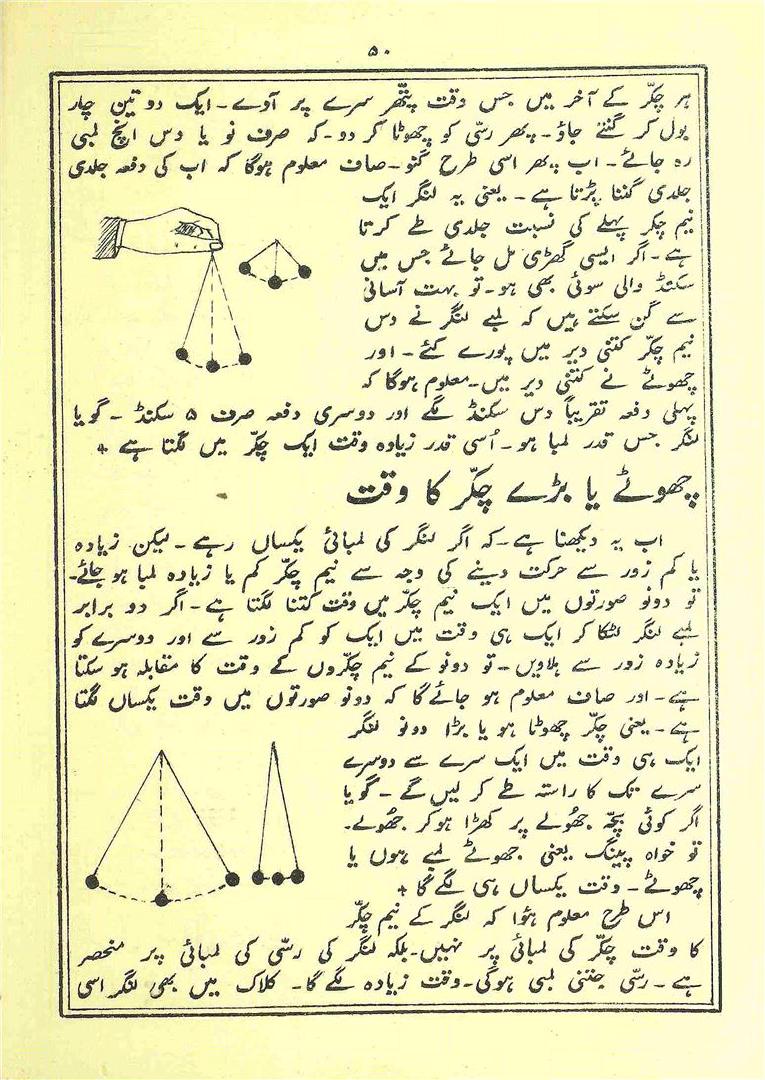 ۵۰
ہر چکّر کے آخر میں جس وقت پتھر سرے پر آوے۔ ایک دو تین چار
بول کر گنتے جاؤ۔ پھر رسّی کو چھوٹا کر دو۔ کہ صرف نو یا دس انچ لمبی
رہ جائے۔ اب پھر اسی طرح گنو۔ صاف معلوم ہوگا کہ اب کی دفعہ جلدی
جلدی گننا پڑتا ہے۔ یعنی یہ لنگر ایک
نیم چکر پہلے کی نسبت جلدی طے کرتا
ہے۔ اگر ایسی گھڑی مل جائے جس میں
سکنڈ والی سوئی بھی ہو۔ تو بہت آسانی
سے گن سکتے ہیں کہ لمبے لنگر نے دس
نیم چکّر کتنی دیر میں پورے کئے۔ اور
چھوٹے نے کتنی دیر میں۔ معلوم ہوگا کہ
پہلی دفعہ تقریباً دس سکنڈ لگے اور دوسری دفعہ صرف ۵ سکنڈ۔ گویا
لنگر جس قدر لمبا ہو۔ اُسی قدر زیادہ وقت ایک چکّر میں لگتا ہے +
چھوٹے یا بڑے چکّر کا وقت
اب یہ دیکھنا ہے۔ کہ اگر لنگر کی لمبائی یکساں رہے۔ لیکن زیادہ
یا کم زور سے حرکت دینے کی وجہ سے نیم چکّر کم یا زیادہ لمبا ہو جائے۔
تو دونو صورتوں میں ایک نیم چکّر میں وقت کتنا لگتا ہے۔ اگر دو برابر
لمبے لنگر لٹکا کر ایک ہی وقت میں ایک کو کم زور سے اور دوسرے کو
زیادہ زور سے ہلاویں۔ تو دونو کے نیم چکّروں کے وقت کا مقابلہ ہو سکتا
ہے۔ اور صاف معلوم ہو جائے گا کہ دونو صورتوں میں وقت یکساں لگتا
ہے۔ یعنی چکّر چھوٹا ہو یا بڑا دونو لنگر
ایک ہی وقت میں ایک سرے سے دوسرے
سرے تک کا راستہ طے کر لیں گے۔ گویا
اگر کوئی بچّہ جھُولے پر کھڑا ہو کر جھُولے۔
تو خواہ پینگ یعنی جھوٹے لمبے ہوں یا
چھوٹے۔ وقت یکساں ہی لگے گا +
اس طرح معلوم ہؤا کہ لنگر کے نیم چکّر
کا وقت چکّر کی لمبائی پر نہیں۔ بلکہ لنگر کی رسّی کی لمبائی پر منحصر
ہے۔ رسّی جتنی لمبی ہوگی۔ وقت زیادہ لگے گا۔ کلاک میں بھی لنگر اسی